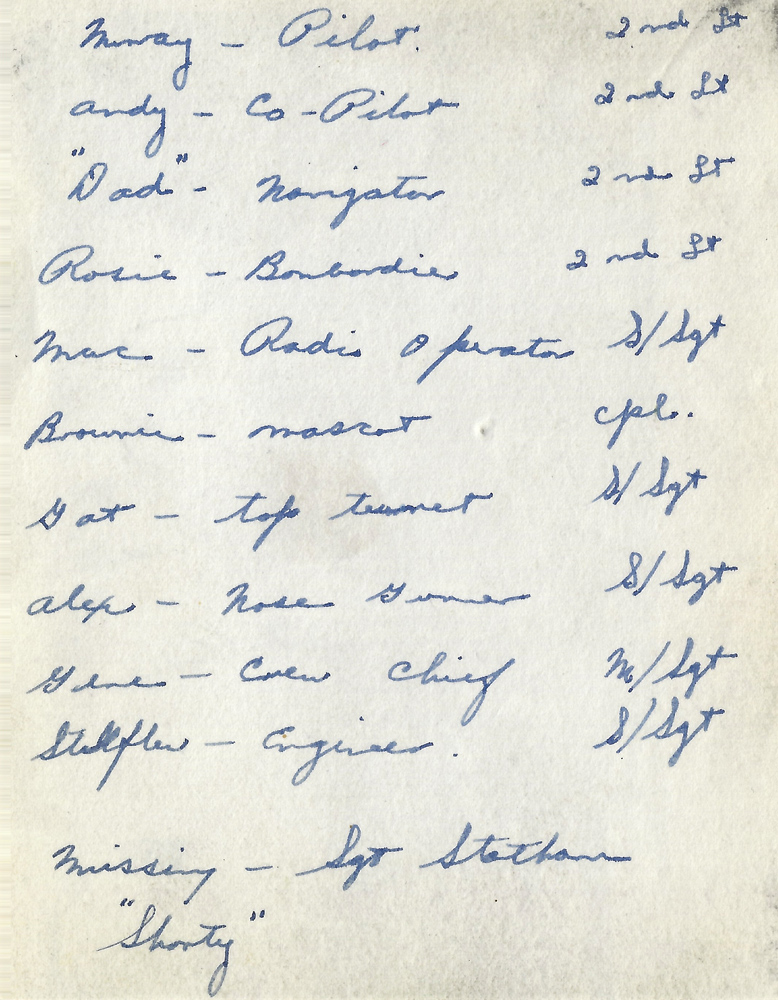 - Pilot. 2nd Lt
Andy - Co-Pilot 2nd Lt
"Dad" - Navigator 2nd Lt
Rosie - Bombardier 2nd Lt
Mac - Radio Operator S/Sgt
Brownie - mascot cpl.
Gat - top turret S/Sgt
Alex - Nose Gunner S/Sgt
Gene - Crew Chief M/Sgt
- Engineer. S/Sgt
Missing - Sgt Statham
"Shorty"